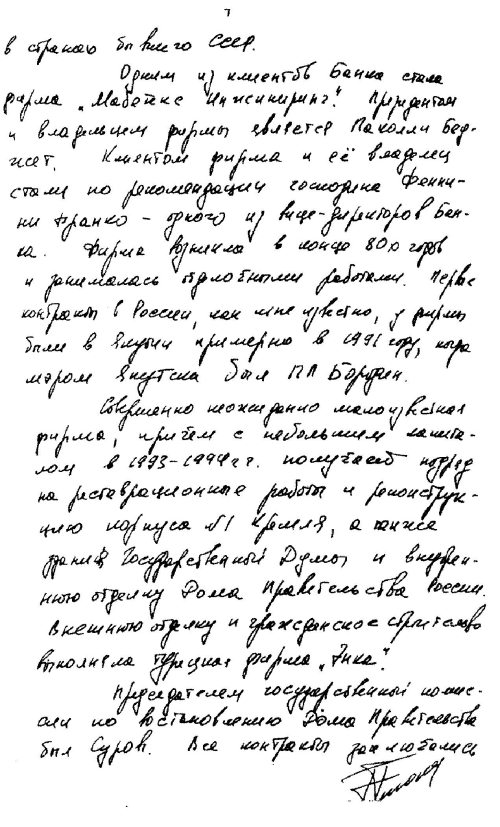 7
в странах бывшего СССР.
Одним из клиентов Банка стала
фирма „Мабетекс Инжиниринг". Президентом
и владельцем фирмы является Паколли Бед-
жет. Клиентом фирма и её владелец
стали по рекомендации господина Фенни-
ни Франко – одного из вице-директоров Бан-
ка. Фирма возникла в конце 80х годов
и занималась отделочными работами. Первые
контракты в России, как мне известно, у фирмы
были в Якутии примерно в 1991 году, когда
мэром Якутска был П.П. Бородин.
Совершенно неожиданно малоизвестная
фирма, причем с небольшим капита-
лом в 1993-1994 г.г. получает подряд
на реставрационные работы и реконструк-
цию корпуса №1 Кремля, а также
зданий Государственной Думы и внутрен-
нюю отделку Дома Правительства России.
Внешнюю отделку и гражданское строительство
выполняла турецкая фирма „Энка".
Председателем государственной комис-
сии по востановлению Дома Правительства
был Суров. Все контракты заключались